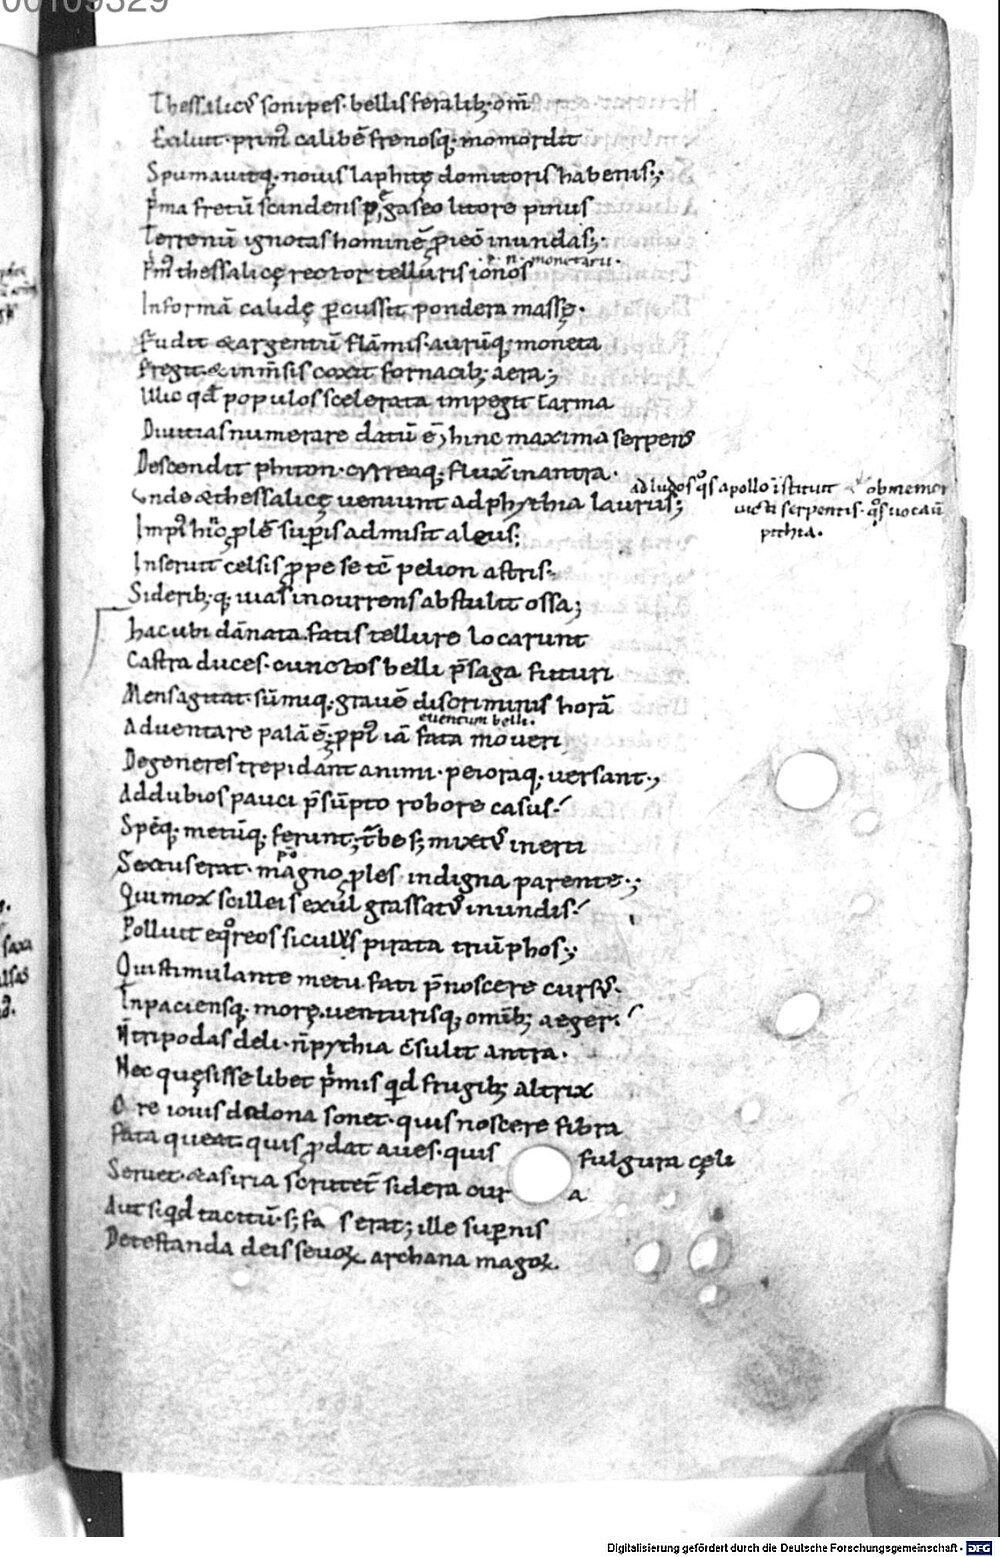 00109329
Thessalicꝰ sonipes· bellis feralib; om̅
Exiluit· prim̅ calibē frenosq; momordit
Spumauitq; nouis laphitę domitoris habenis;
P̍ma fretū scindens pagaseo litore pinus
Terrenū ignotas hominē p̱iec̄ in undas;
P̍m thessalicę rector telluris ionos
.p. n. monetarii.
In formā calidę ꝑcussit pondera massę·
Fudit & argentū flām̄is· aurūq; moneta
Fregit & inm̄sis coxit fornacib; aera;
Illic qd̄ populos scelerata impegit in arma
Diuitias numerare datū ē; hinc maxima serpens
Descendit phiton· cyrreaq; fluxit in antra·
Vnde & thessalicę ueniunt ad phythia laurus;
ad ludos qͦs apollo īstituit ob memor
uicti serpentis· qͦs uocaū
pithia.
Impiꝰ hinc ꝓlē supis admisit aleus;
Inseruit celsis ꝓpe se cū pelion astris·
Siderib;q; uias incurrens abstulit ossa;
Hac ubi dānata fatis tellure locarunt
Castra duces· cunctos belli p̄saga futuri
Mens agitat· sūmiq; grauē discriminis horā
Aduentare palā ē; ꝓpiꝰ iā fata moueri
euentum belli.
Degeneres trepidant animi· peioraq; uersant·,
Ad dubios pauci p̄sūpto robore casus·
Spēq; metūq; ferunt; t̄be s; mixtꝰ inerti
Sextus erat· magno ꝓles indigna parente·;
Qui mox scilleis exul grassatꝰ in undis·
Polluit eqͦreos siculus pirata triūphos;
Qui stimulante metu fati p̄noscere cursꝰ·
Inpaciensq; morę· uenturisq; omīb; aeger·
N̄ tripodas deli· n̄ pythia c̄sulit antra·
Nec quęsisse libet p̍mis qd̄ frugib; altrix
Aere iouis dodona sonet· quis noscere fibra
Fata queat· quis ꝓdat aues· quis fulgura cęli
Seruet· & asiria scrutet̄ sidera cur a
Aut siqd̄ tacitū· s; fas erat; ille supnis
Detestanda deis seuoꝝ archana magoꝝ
Digitalisierung gefördert durch die Deutsche Forschungsgemeinschaft - DFG